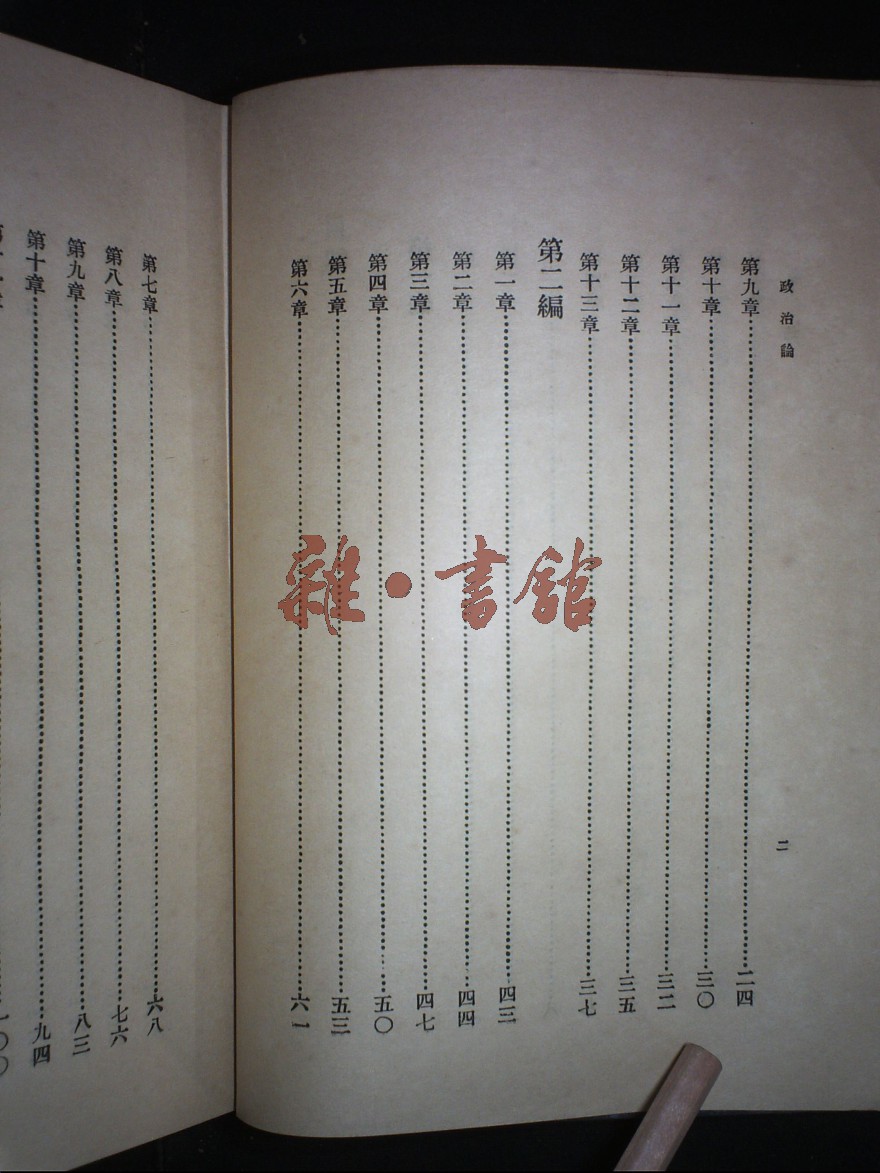 政治論
二
第九章 二四
第十章 三〇
第十一章 三二
第十二章 三五
第十三章 三七
第二編
第一章 四三
第二章 四四
第三章 四七
第四章 五〇
第五章 五三
第六章 六一
第七章 六八
第八章 七六
第九章 八三
第十章 九四
一〇〇
雜·書館